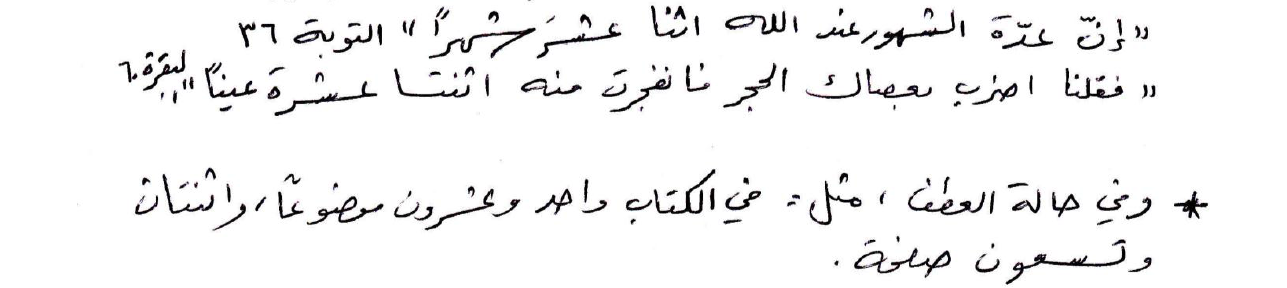 "إنّ عدّة الشهور عند الله اثنا عشَرَ شهرًا" التوبة ٣٦
"فقلنا اضرب بعصاك الحجر فانفجرت منه اثنتا عشرة عينًا" البقرة ٦٠
* وفي حالة العطف ، مثل : في الكتاب واحد وعشرون موضوعًا، واثنتان
وتسعون صفحة .